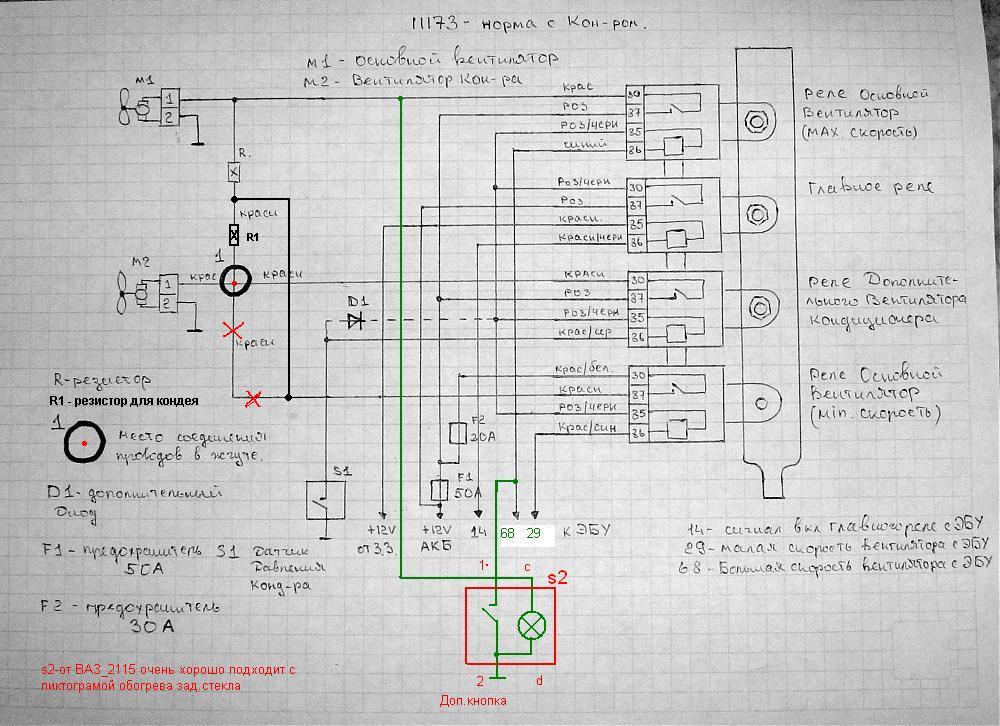 11173 - норма с Кон-ром.
М1 - Основной вентилятор
М2 - Вентилятор Кон-ра
М1
1
2
R.
красн
R1
1
М2
крас
красн
1
2
красн
D1
крас
роз
роз/черн
синий
30
87
85
86
роз/черн
роз
красн.
красн/черн
30
87
85
86
красн
роз
роз/черн
крас/сер
30
87
85
86
крас/бел.
красн
роз/черн
крас/син
30
87
85
86
Реле Основной
Вентилятор
(MAX. скорость)
Главное реле
Реле Дополните-
льного Вентилятора
кондиционера
Реле Основной
Вентилятор
(Min. скорость)
R-резистор
R1 - резистор для кондея
1
Место соединения
проводов в жгуте.
D1 - дополнительный
Диод
F1 - предохранитель
50А
F2 - предохранитель
30А
S1
S1 Датчик
Давления
Конд-ра
F2
20А
F1
50А
+12V
от З.З.
+12V
АКБ
14
68
29
к ЭБУ
14 - сигнал вкл главного реле с ЭБУ
29 - малая скорость вентилятора с ЭБУ
68 - Большая скорость вентилятора с ЭБУ
1
c
s2
2
d
Доп.кнопка
s2-от ВАЗ_2115 очень хорошо подходит с
пиктограмой обогрева зад.стекла